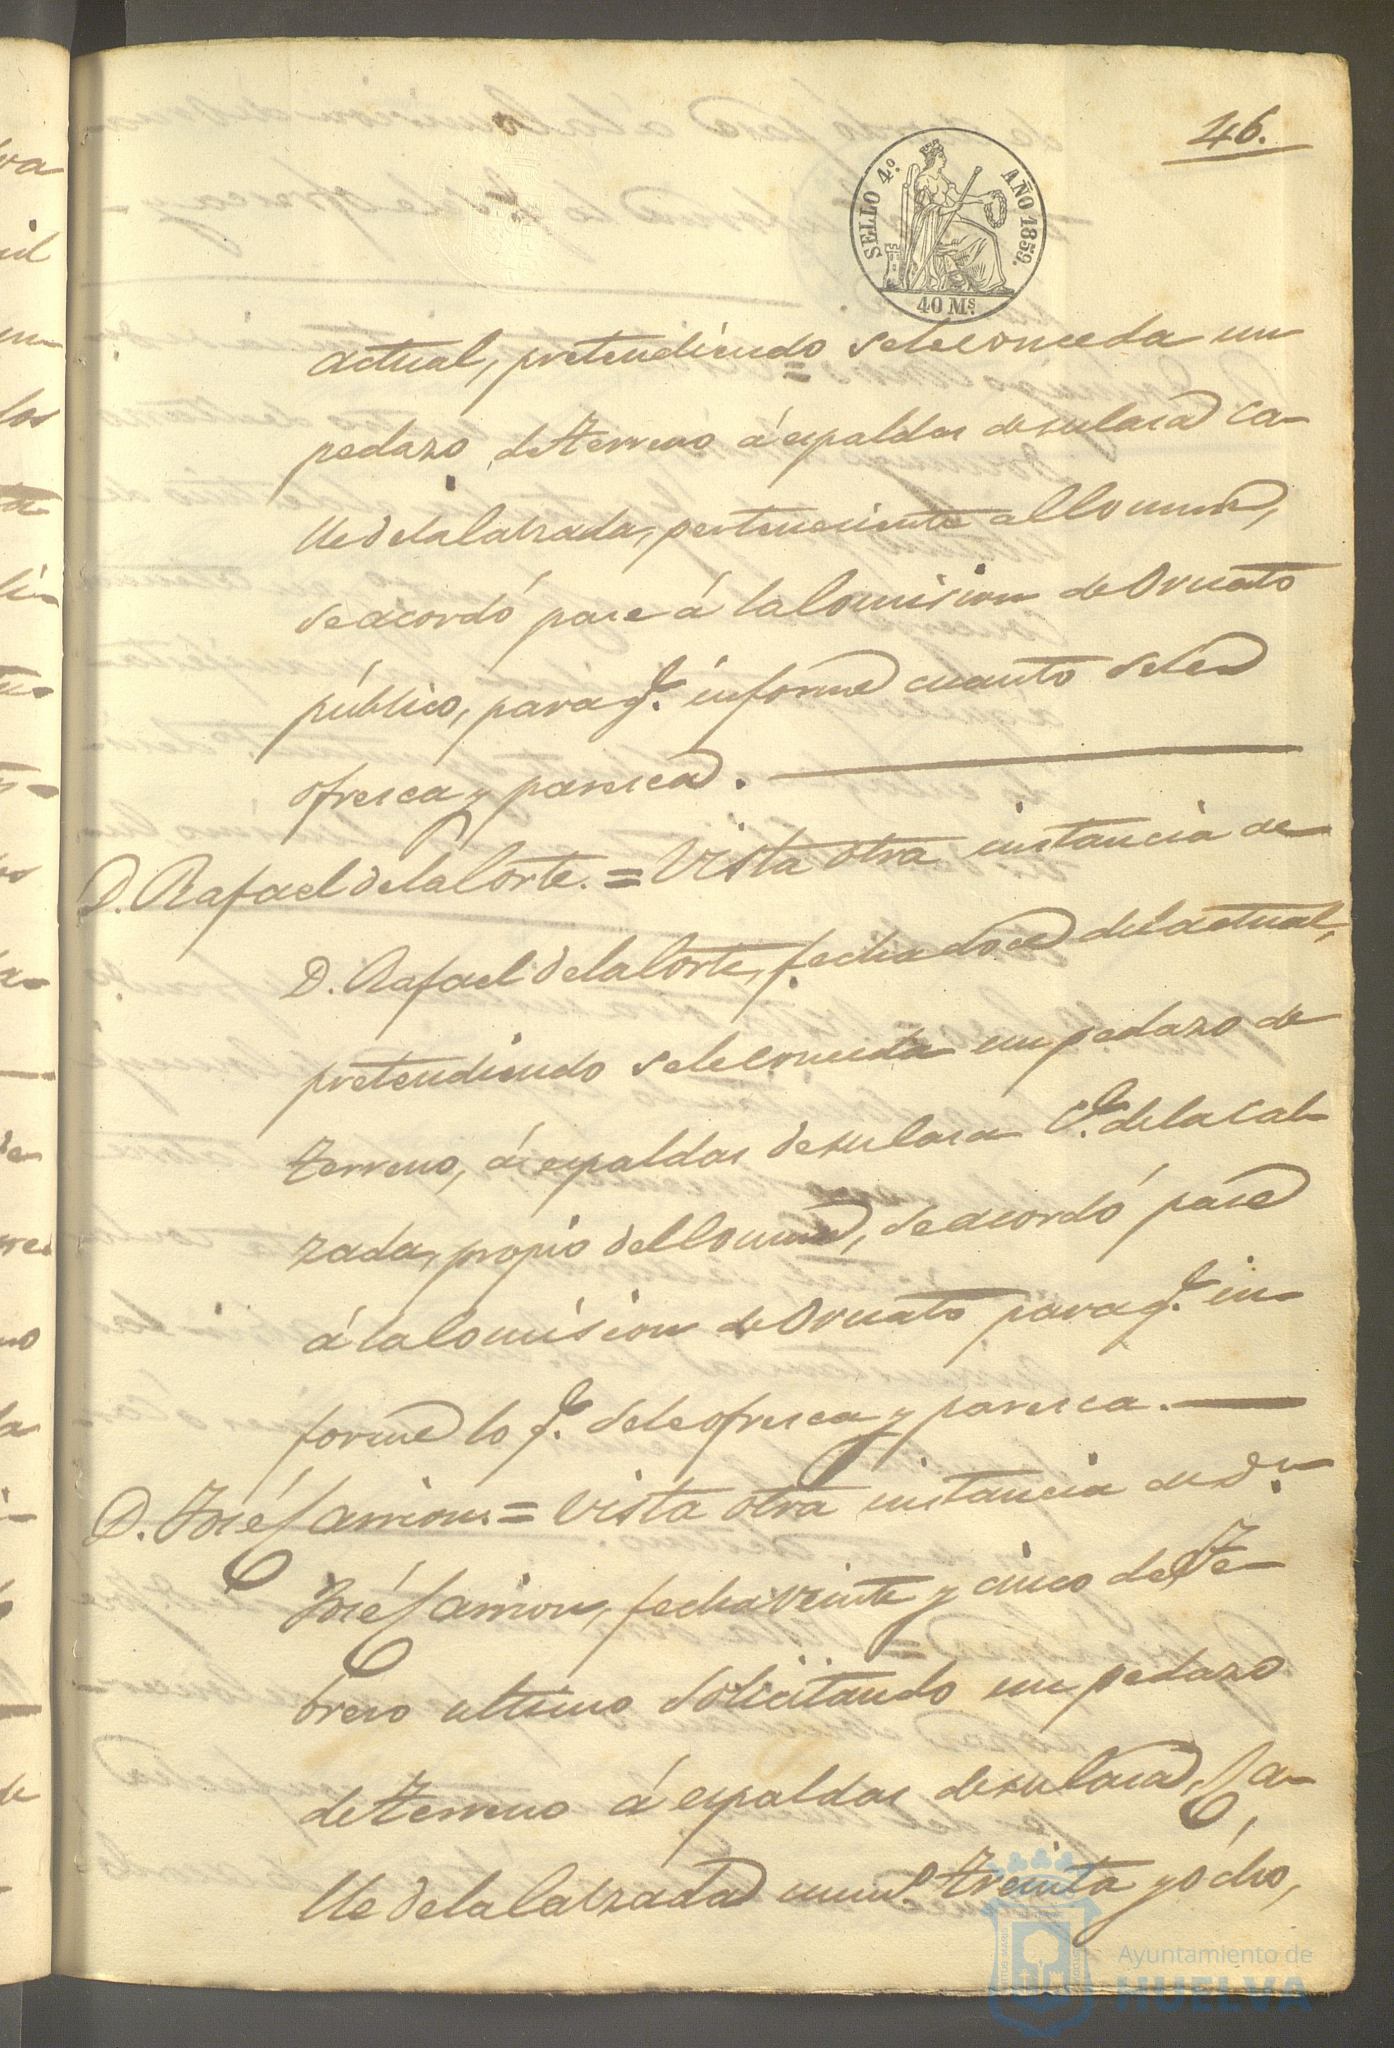 46.
SELLO 4.º AÑO 1859.
40 Ms.
actual, pretendiendo se le conceda un
pedazo de terreno á espaldas de su Casa Ca-
lle de la Calzada, perteneciente al Comun,
se acordó pase á la Comision de Ornato
público, para q.e informe cuanto se le
ofresca y paresca.
D. Rafael de la Corte. = Vista otra instancia de
D. Rafael de la Corte, fecha doce del actual,
pretendiendo se le conceda un pedazo de
terreno, á espaldas de su Casa C.e de la Cal-
zada, propio del Comun, se acordó pase
á la Comision de Ornato para q.e in-
forme lo q.e se le ofresca y paresca.
D. José Carrion. = Vista otra instancia de D.n
José Carrion, fecha veinte y cinco de Fe-
brero ultimo solicitando un pedazo
de terreno á espaldas de su Casa, Ca-
lle de la Calzada num.o treinta y ócho,
Ayuntamiento de
HUELVA